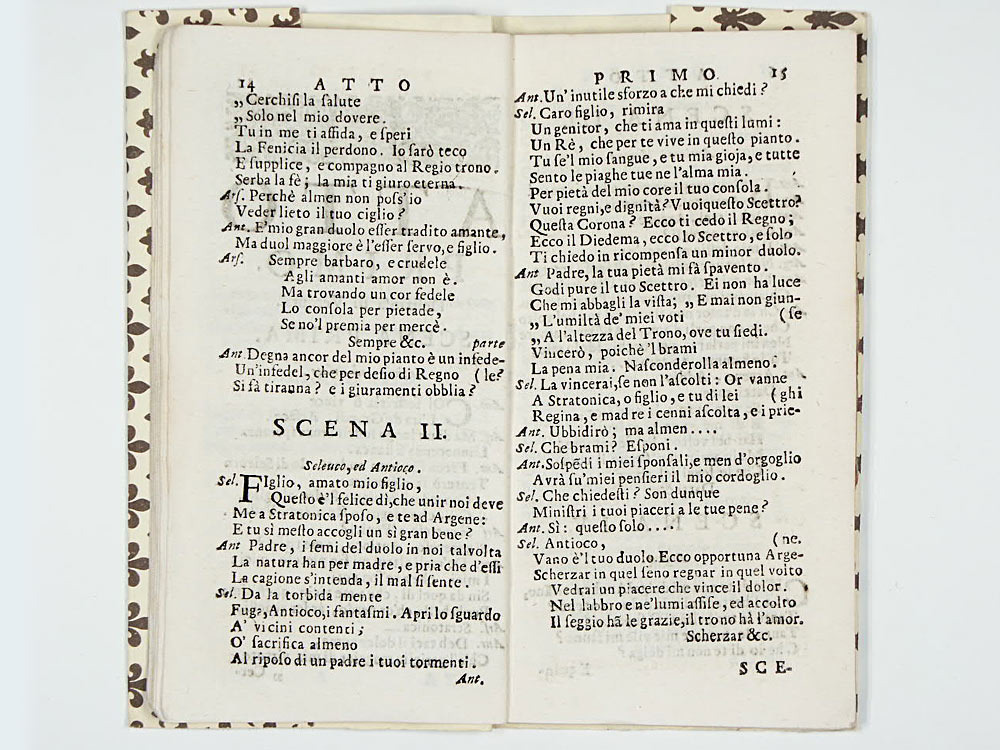 14 ATTO
„Cerchiſi la ſalute
„Solo nel mio dovere.
Tu in me ti affida, e ſperi
La Fenicia il perdono. Io ſarò teco
E ſupplice, e compagno al Regio trono.
Serba la fè; la mia ti giuro eterna.
Arſ. Perchè almen non poſs'io
Veder lieto il tuo ciglio?
Ant. E'mio gran duolo eſſer tradito amante,
Ma duol maggiore è l'eſſer ſervo, e figlio.
Arſ. Sempre barbaro, e crudele
Agli amanti amor non è.
Ma trovando un cor fedele
Lo conſola per pietade,
Se no'l premia per mercè.
Sempre &c. parte
Ant. Degna ancor del mio pianto è un infede-
Un'infedel, che per deſio di Regno (le?
Si fà tiranna? e i giuramenti obblia?
SCENA II.
Seleuco, ed Antioco.
Sel. FIglio, amato mio figlio,
Queſto è'l felice dì, che unir noi deve
Me a Stratonica ſpoſo, e te ad Argene:
E tu sì meſto accogli un sì gran bene?
Ant Padre, i ſemi del duolo in noi talvolta
La natura han per madre, e pria che d'eſſi
La cagione s'intenda, il mal ſi ſente.
Sel. Da la torbida mente
Fuga, Antioco, i fantaſmi. Apri lo ſguardo
A' vicini contenti;
O' ſacrifica almeno
Al ripoſo di un padre i tuoi tormenti.
Ant.
PRIMO 15
Ant. Un' inutile sforzo a che mi chiedi?
Sel. Caro figlio, rimira
Un genitor, che ti ama in queſti lumi:
Un Rè, che per te vive in queſto pianto.
Tu ſe'l mio ſangue, e tu mia gioja, e tutte
Sento le piaghe tue ne l'alma mia.
Per pietà del mio core il tuo conſola.
Vuoi regni, e dignità? Vuoi queſto Scettro?
Queſta Corona? Ecco ti cedo il Regno;
Ecco il Diedema, ecco lo Scettro, e ſolo
Ti chiedo in ricompenſa un minor duolo.
Ant Padre, la tua pietà mi fà ſpavento.
Godi pure il tuo Scettro. Ei non ha luce
Che mi abbagli la viſta; „E mai non giun-
„L'umiltà de' miei voti (ſe
„A l'altezza del Trono, ove tu ſiedi.
Vincerò, poichè 'l brami
La pena mia. Naſconderolla almeno.
Sel. La vincerai, ſe non l'aſcolti: Or vanne
A Stratonica, o figlio, e tu di lei (ghi
Regina, e madre i cenni aſcolta, e i prie-
Ant. Ubbidirò; ma almen....
Sel. Che brami? Eſponi.
Ant. Soſpēdi i miei ſponſali, e men d'orgoglio
Avrà ſu'miei penſieri il mio cordoglio.
Sel. Che chiedeſti? Son dunque
Miniſtri i tuoi piaceri a le tue pene?
Ant. Sì: queſto ſolo....
Sel. Antioco, (ne.
Vano è'l tuo duolo. Ecco opportuna Arge-
Scherzar in quel ſeno regnar in quel volto
Vedrai un piacere che vince il dolor.
Nel labbro e ne'lumi aſſiſe, ed accolto
Il ſeggio hā le grazie, il trono hà l'amor.
Scherzar &c.
SCE-